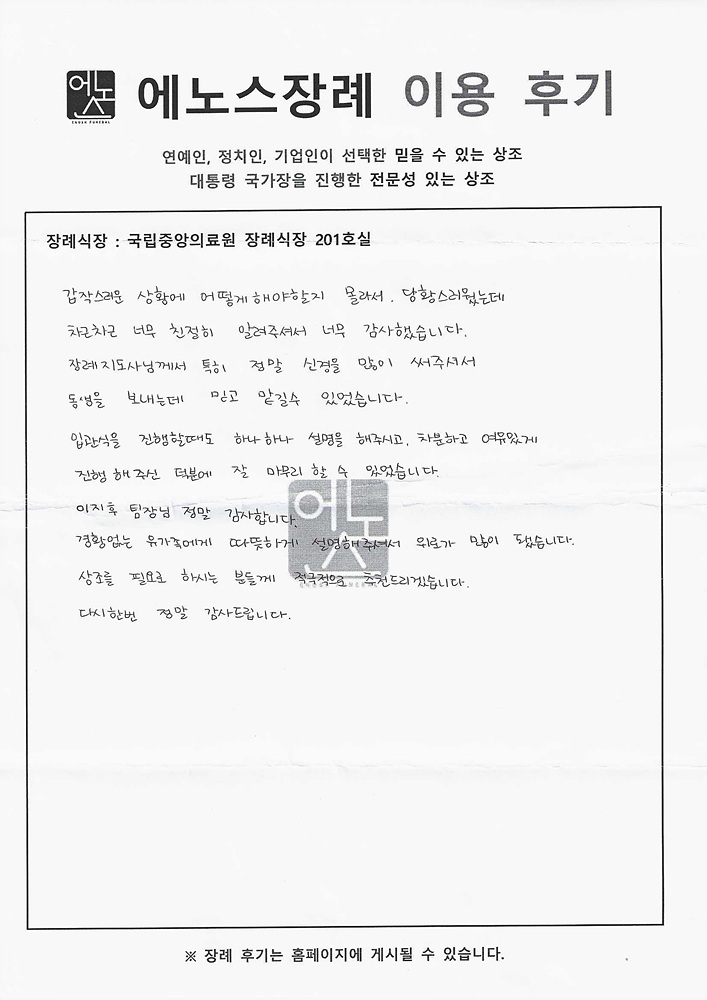 에노스
ENOSH FUNERAL
에노스장례 이용 후기
연예인, 정치인, 기업인이 선택한 믿을 수 있는 상조
대통령 국가장을 진행한 전문성 있는 상조
장례식장 : 국립중앙의료원 장례식장 201호실
갑작스러운 상황에 어떻게해야할지 몰라서, 당황스러웠는데
차근차근 너무 친절히 알려주셔서 너무 감사했습니다.
장례지도사님께서 특히 정말 신경을 많이 써주셔서
동생을 보내는데 믿고 맡길수 있었습니다.
입관식을 진행할때도 하나하나 설명을 해주시고, 차분하고 여유있게
진행 해주신 덕분에 잘 마무리 할 수 있었습니다.
이지후 팀장님 정말 감사합니다.
경황없는 유가족에게 따뜻하게 설명해주셔서 위로가 많이 됐습니다.
상조를 필요로 하시는 분들께 적극적으로 추천드리겠습니다.
다시한번 정말 감사드립니다.
에노스
※ 장례 후기는 홈페이지에 게시될 수 있습니다.